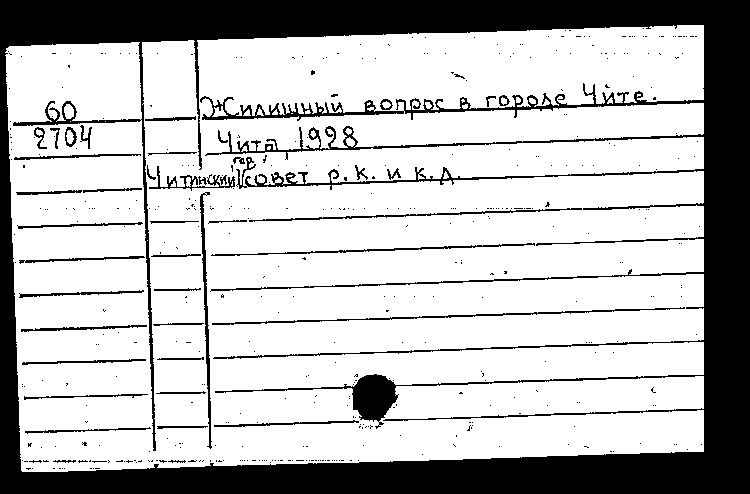 60 Жилищный вопрос в городе Чите.
2704 Чита, 1928
Читинский гор. совет р. к. и к. д.